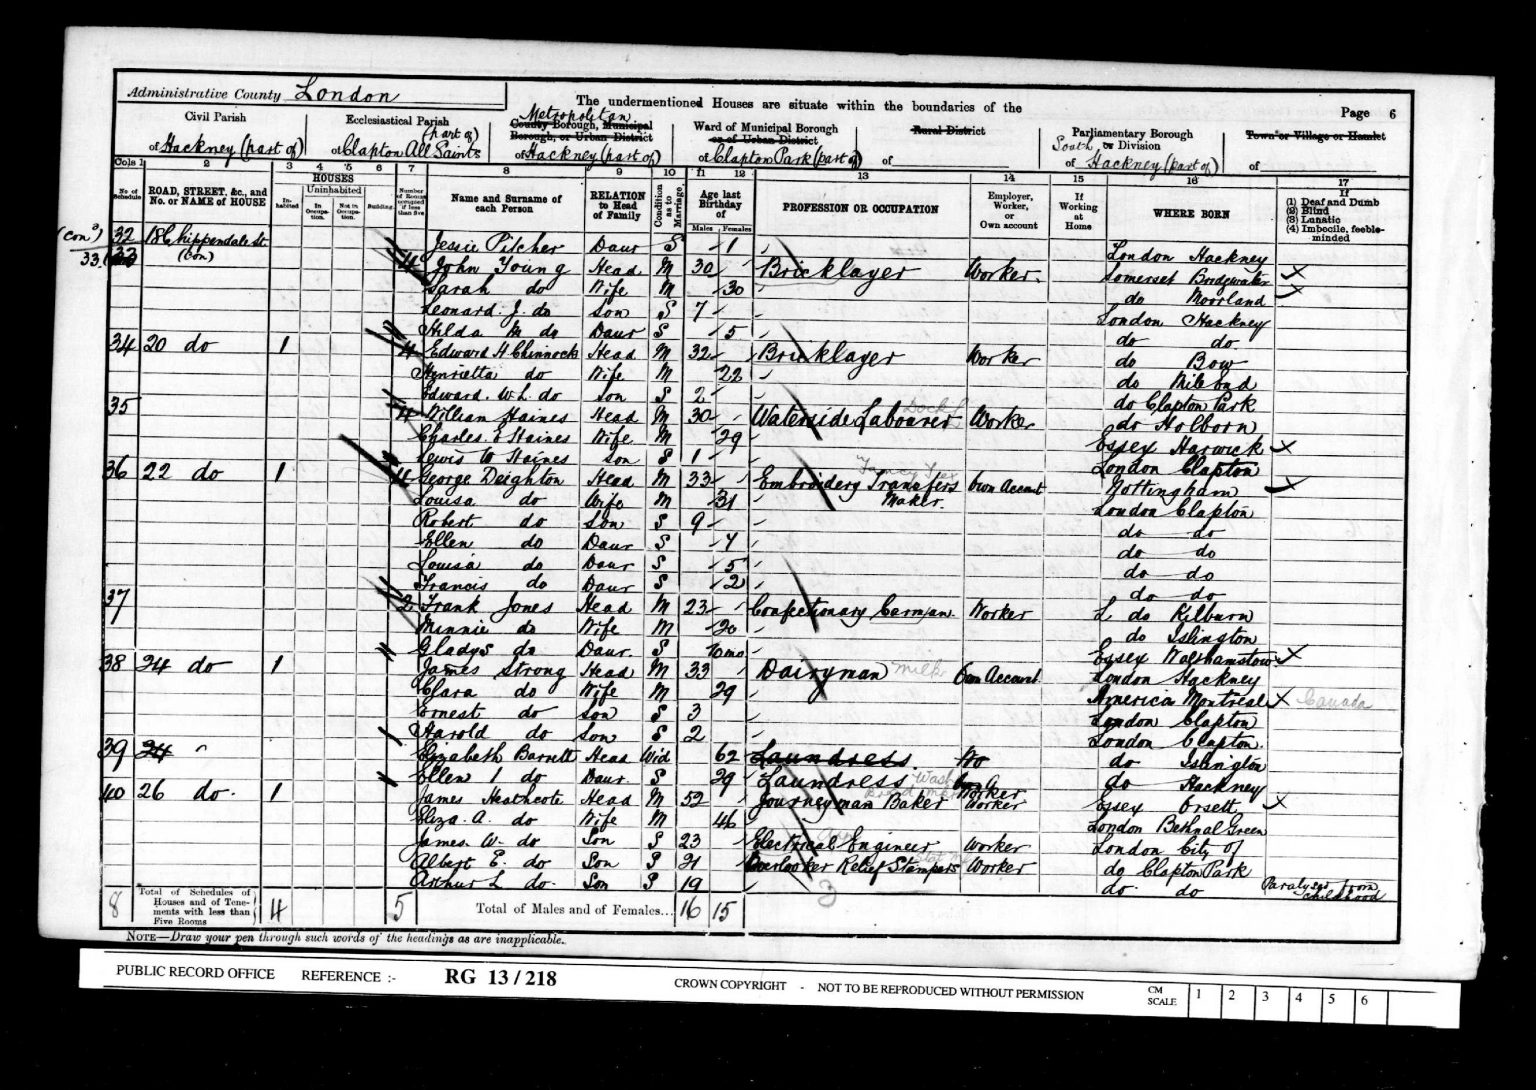 Administrative County London
The undermentioned Houses are situate within the boundaries of the
Page 6
Civil Parish
of Hackney (part of)
Ecclesiastical Parish
of Clapton All Saints (part of)
Metropolitan
County Borough, Municipal
Borough, or Urban District
of Hackney (part of)
Ward of Municipal Borough
or of Urban District
of Clapton Park (part of)
Rural District
of
Parliamentary Borough
South or Division
of Hackney (part of)
Town or Village or Hamlet
of
Cols 1 2 3 4 5 6 7 8 9 10 11 12 13 14 15 16 17
No. of Schedule
ROAD, STREET, &c., and No. or NAME of HOUSE
HOUSES
Inhabited
Uninhabited
In Occupation.
Not in Occupation.
Building
Number of Rooms occupied if less than five
Name and Surname of each Person
RELATION to Head of Family
Condition as to Marriage
Age last Birthday of
Males Females
PROFESSION OR OCCUPATION
Employer, Worker, or Own account
If Working at Home
WHERE BORN
If
(1) Deaf and Dumb
(2) Blind
(3) Lunatic
(4) Imbecile, feeble-minded
32 18 Chippendale St. (Con) Jessie Pilcher Daur S 1 London Hackney
33 4 John Young Head M 30 Bricklayer Worker Somerset Bridgwater
Sarah do Wife M 30 do Moorland
Leonard J. do Son S 7 London Hackney
Hilda M do Daur S 5 do do
34 20 do 1 4 Edward H Chinnock Head M 32 Bricklayer Worker do Bow
Henrietta do Wife M 22 do Mile End
Edward W L do Son S 2 do Clapton Park
35 4 William Haines Head M 30 Waterside Labourer Dock L Worker do Holborn
Charles E Haines Wife M 29 Essex Harwick
Lewis W Haines Son S 1 London Clapton
36 22 do 1 4 George Deighton Head M 33 Embroidery Transfers Maker. Own Account Nottingham
Louisa do Wife M 31 London Clapton
Robert do Son S 9 do do
Ellen do Daur S 7 do do
Louisa do Daur S 5 do do
Francis do Daur S 2 do do
37 2 Frank Jones Head M 23 Confectionary Carman Worker L do Kilburn
Minnie do Wife M 20 do Islington
Gladys do Daur. S 10 mo Essex Walthamstow
38 24 do 1 James Strong Head M 33 Dairyman Milk Own Account London Hackney
Clara do Wife M 29 America Montreal Canada
Ernest do Son S 3 London Clapton
Harold do Son S 2 London Clapton.
39 24 " Elizabeth Barrett Head Wid 62 Laundress. do Islington
Ellen I do Daur. S 29 Laundress Wash Worker do Hackney
40 26 do. 1 James Heathcote Head M 52 Journeyman Baker Worker Essex Orsett
Eliza. A. do Wife M 46 London Bethnal Green
James. W. do Son S 23 Electrical Engineer Worker London City of
Albert E. do Son S 21 Overlooker Relief Stampers Worker do Clapton Park
Arthur L do. Son S 19 do do Paralysed from childhood
8 Total of Schedules of Houses and of Tenements with less than Five Rooms 4 5 Total of Males and of Females... 16 15
NOTE—Draw your pen through such words of the headings as are inapplicable.
PUBLIC RECORD OFFICE REFERENCE :- RG 13/218 CROWN COPYRIGHT - NOT TO BE REPRODUCED WITHOUT PERMISSION CM SCALE 1 2 3 4 5 6